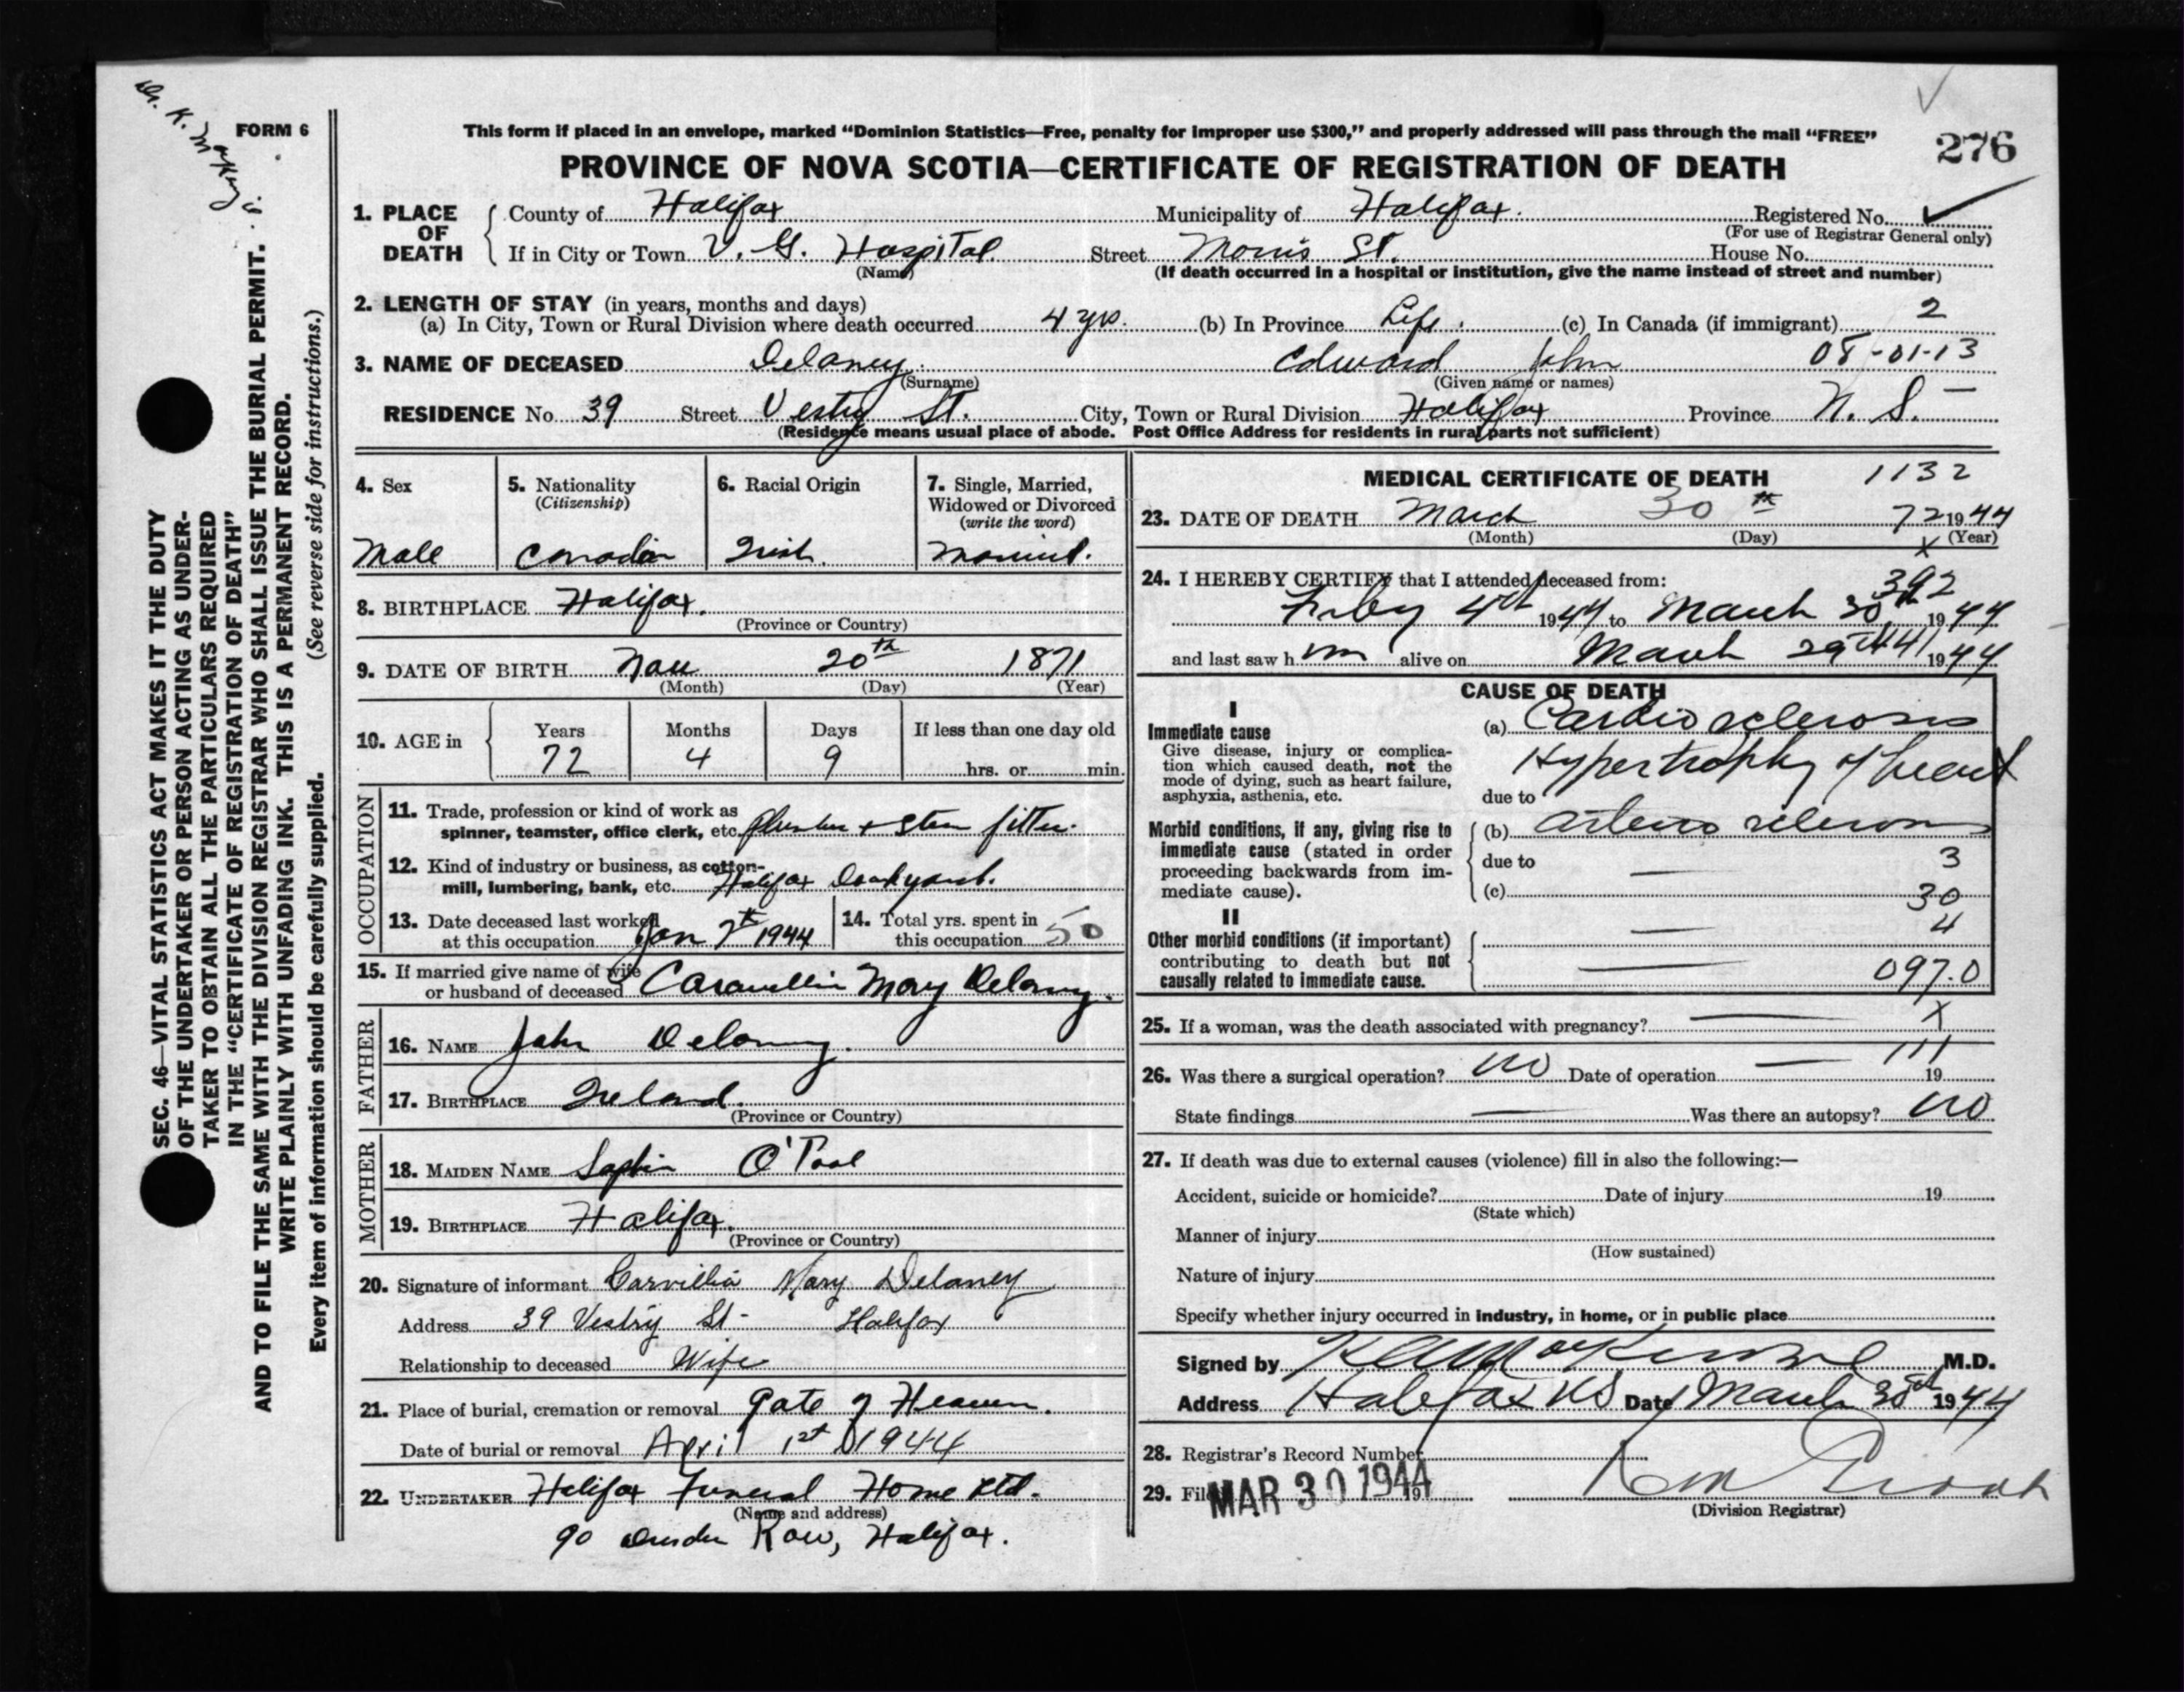 Dr. K.
FORM 6
This form if placed in an envelope, marked “Dominion Statistics—Free, penalty for improper use $300,” and properly addressed will pass through the mail “FREE”
276
PROVINCE OF NOVA SCOTIA—CERTIFICATE OF REGISTRATION OF DEATH
1. PLACE OF DEATH County of Halifax Municipality of Halifax. Registered No.
(For use of Registrar General only)
If in City or Town V. G. Hospital Street Morris St. House No.
(Name) (If death occurred in a hospital or institution, give the name instead of street and number)
2. LENGTH OF STAY (in years, months and days)
(a) In City, Town or Rural Division where death occurred 4 yrs. (b) In Province Life. (c) In Canada (if immigrant) 2
3. NAME OF DECEASED Delaney. Edward John 08-01-13
(Surname) (Given name or names)
RESIDENCE No. 39 Street Vestry St. City, Town or Rural Division Halifax Province N. S.
(Residence means usual place of abode. Post Office Address for residents in rural parts not sufficient)
4. Sex 5. Nationality (Citizenship) 6. Racial Origin 7. Single, Married, Widowed or Divorced (write the word)
Male Canadian Irish. Married.
8. BIRTHPLACE Halifax.
(Province or Country)
9. DATE OF BIRTH Nov 20th 1871
(Month) (Day) (Year)
10. AGE in Years Months Days If less than one day old
72 4 9 hrs. or min.
OCCUPATION
11. Trade, profession or kind of work as
spinner, teamster, office clerk, etc. Plumber + Steam fitter.
12. Kind of industry or business, as cotton-
mill, lumbering, bank, etc. Halifax Dockyard.
13. Date deceased last worked at this occupation Jan 7th 1944 14. Total yrs. spent in this occupation 50
15. If married give name of wife
or husband of deceased Mary Delaney.
FATHER
16. NAME John Delaney.
17. BIRTHPLACE Ireland.
(Province or Country)
MOTHER
18. MAIDEN NAME Sophia O'Tool
19. BIRTHPLACE Halifax.
(Province or Country)
20. Signature of informant Carvillia Mary Delaney
Address 39 Vestry St- Halifax
Relationship to deceased Wife
21. Place of burial, cremation or removal Gate of Heaven.
Date of burial or removal April 1st 1944
22. UNDERTAKER Halifax Funeral Home Ltd.
(Name and address)
90 Row, Halifax.
MEDICAL CERTIFICATE OF DEATH 1132
23. DATE OF DEATH March 30th 72 1944
(Month) (Day) (Year)
X
24. I HEREBY CERTIFY that I attended deceased from: 392
4th 1944 to March 30th 1944
and last saw him alive on March 29th 441 1944
CAUSE OF DEATH
I
Immediate cause
Give disease, injury or complica-
tion which caused death, not the
mode of dying, such as heart failure,
asphyxia, asthenia, etc.
(a) Cardio sclerosis
Hypertrophy of heart
due to
Morbid conditions, if any, giving rise to
immediate cause (stated in order
proceeding backwards from im-
mediate cause).
(b) Arterio sclerosis
due to — 3
(c) 30
II
Other morbid conditions (if important)
contributing to death but not
causally related to immediate cause.
— 4
— 097.0
25. If a woman, was the death associated with pregnancy? — X
26. Was there a surgical operation? no Date of operation — 111 19
State findings — Was there an autopsy? no
27. If death was due to external causes (violence) fill in also the following:—
Accident, suicide or homicide? Date of injury 19
(State which)
Manner of injury
(How sustained)
Nature of injury
Specify whether injury occurred in industry, in home, or in public place
Signed by M.D.
Address Halifax NS Date March 30th 1944
28. Registrar's Record Number
29. Filed MAR 30 1944 19
(Division Registrar)
SEC. 46—VITAL STATISTICS ACT MAKES IT THE DUTY
OF THE UNDERTAKER OR PERSON ACTING AS UNDER-
TAKER TO OBTAIN ALL THE PARTICULARS REQUIRED
IN THE “CERTIFICATE OF REGISTRATION OF DEATH”
AND TO FILE THE SAME WITH THE DIVISION REGISTRAR WHO SHALL ISSUE THE BURIAL PERMIT.
WRITE PLAINLY WITH UNFADING INK. THIS IS A PERMANENT RECORD.
Every item of information should be carefully supplied. (See reverse side for instructions.)